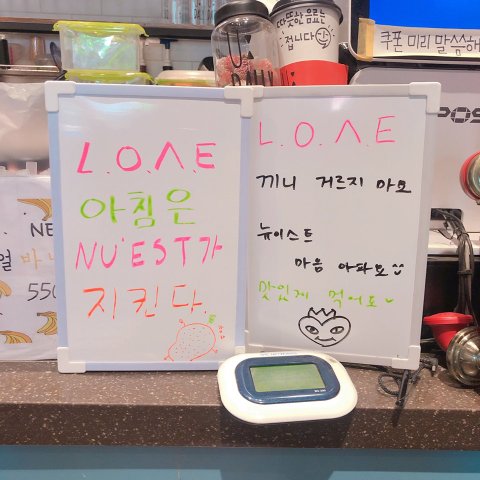 따뜻한 음료는
접니다
쿠폰 미리 말씀해
POS
L.O.Λ.E
아침은
NU'EST가
지킨다.
L.O.Λ.E
끼니 거르지 마요
뉴이스트
마음 아파요
맛있게 먹어요
NE
얼 바나
550